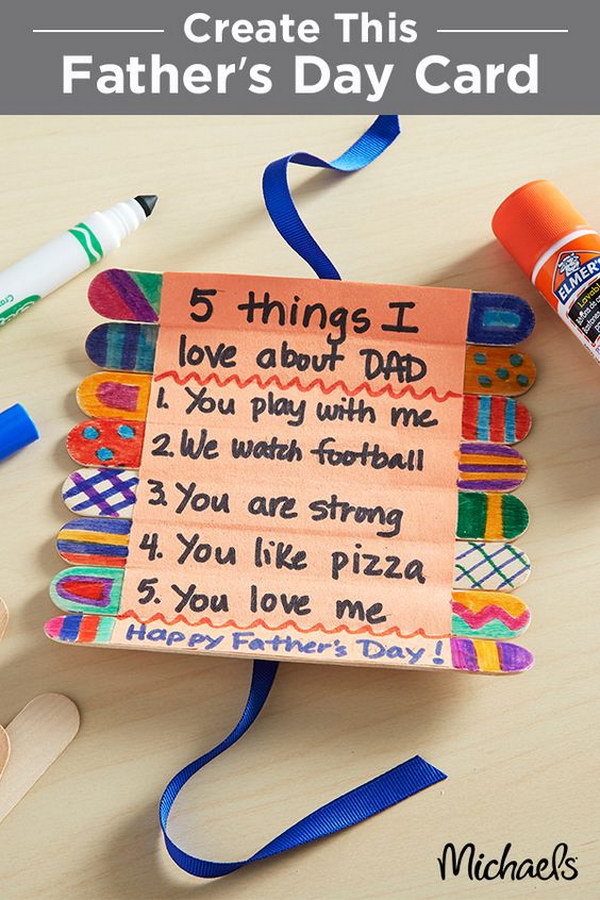 Create This
Father's Day Card
5 things I
love about DAD
1. You play with me
2. We watch football
3. You are strong
4. You like pizza
5. You love me
Happy Father's Day!
ELMER'S
Michaels